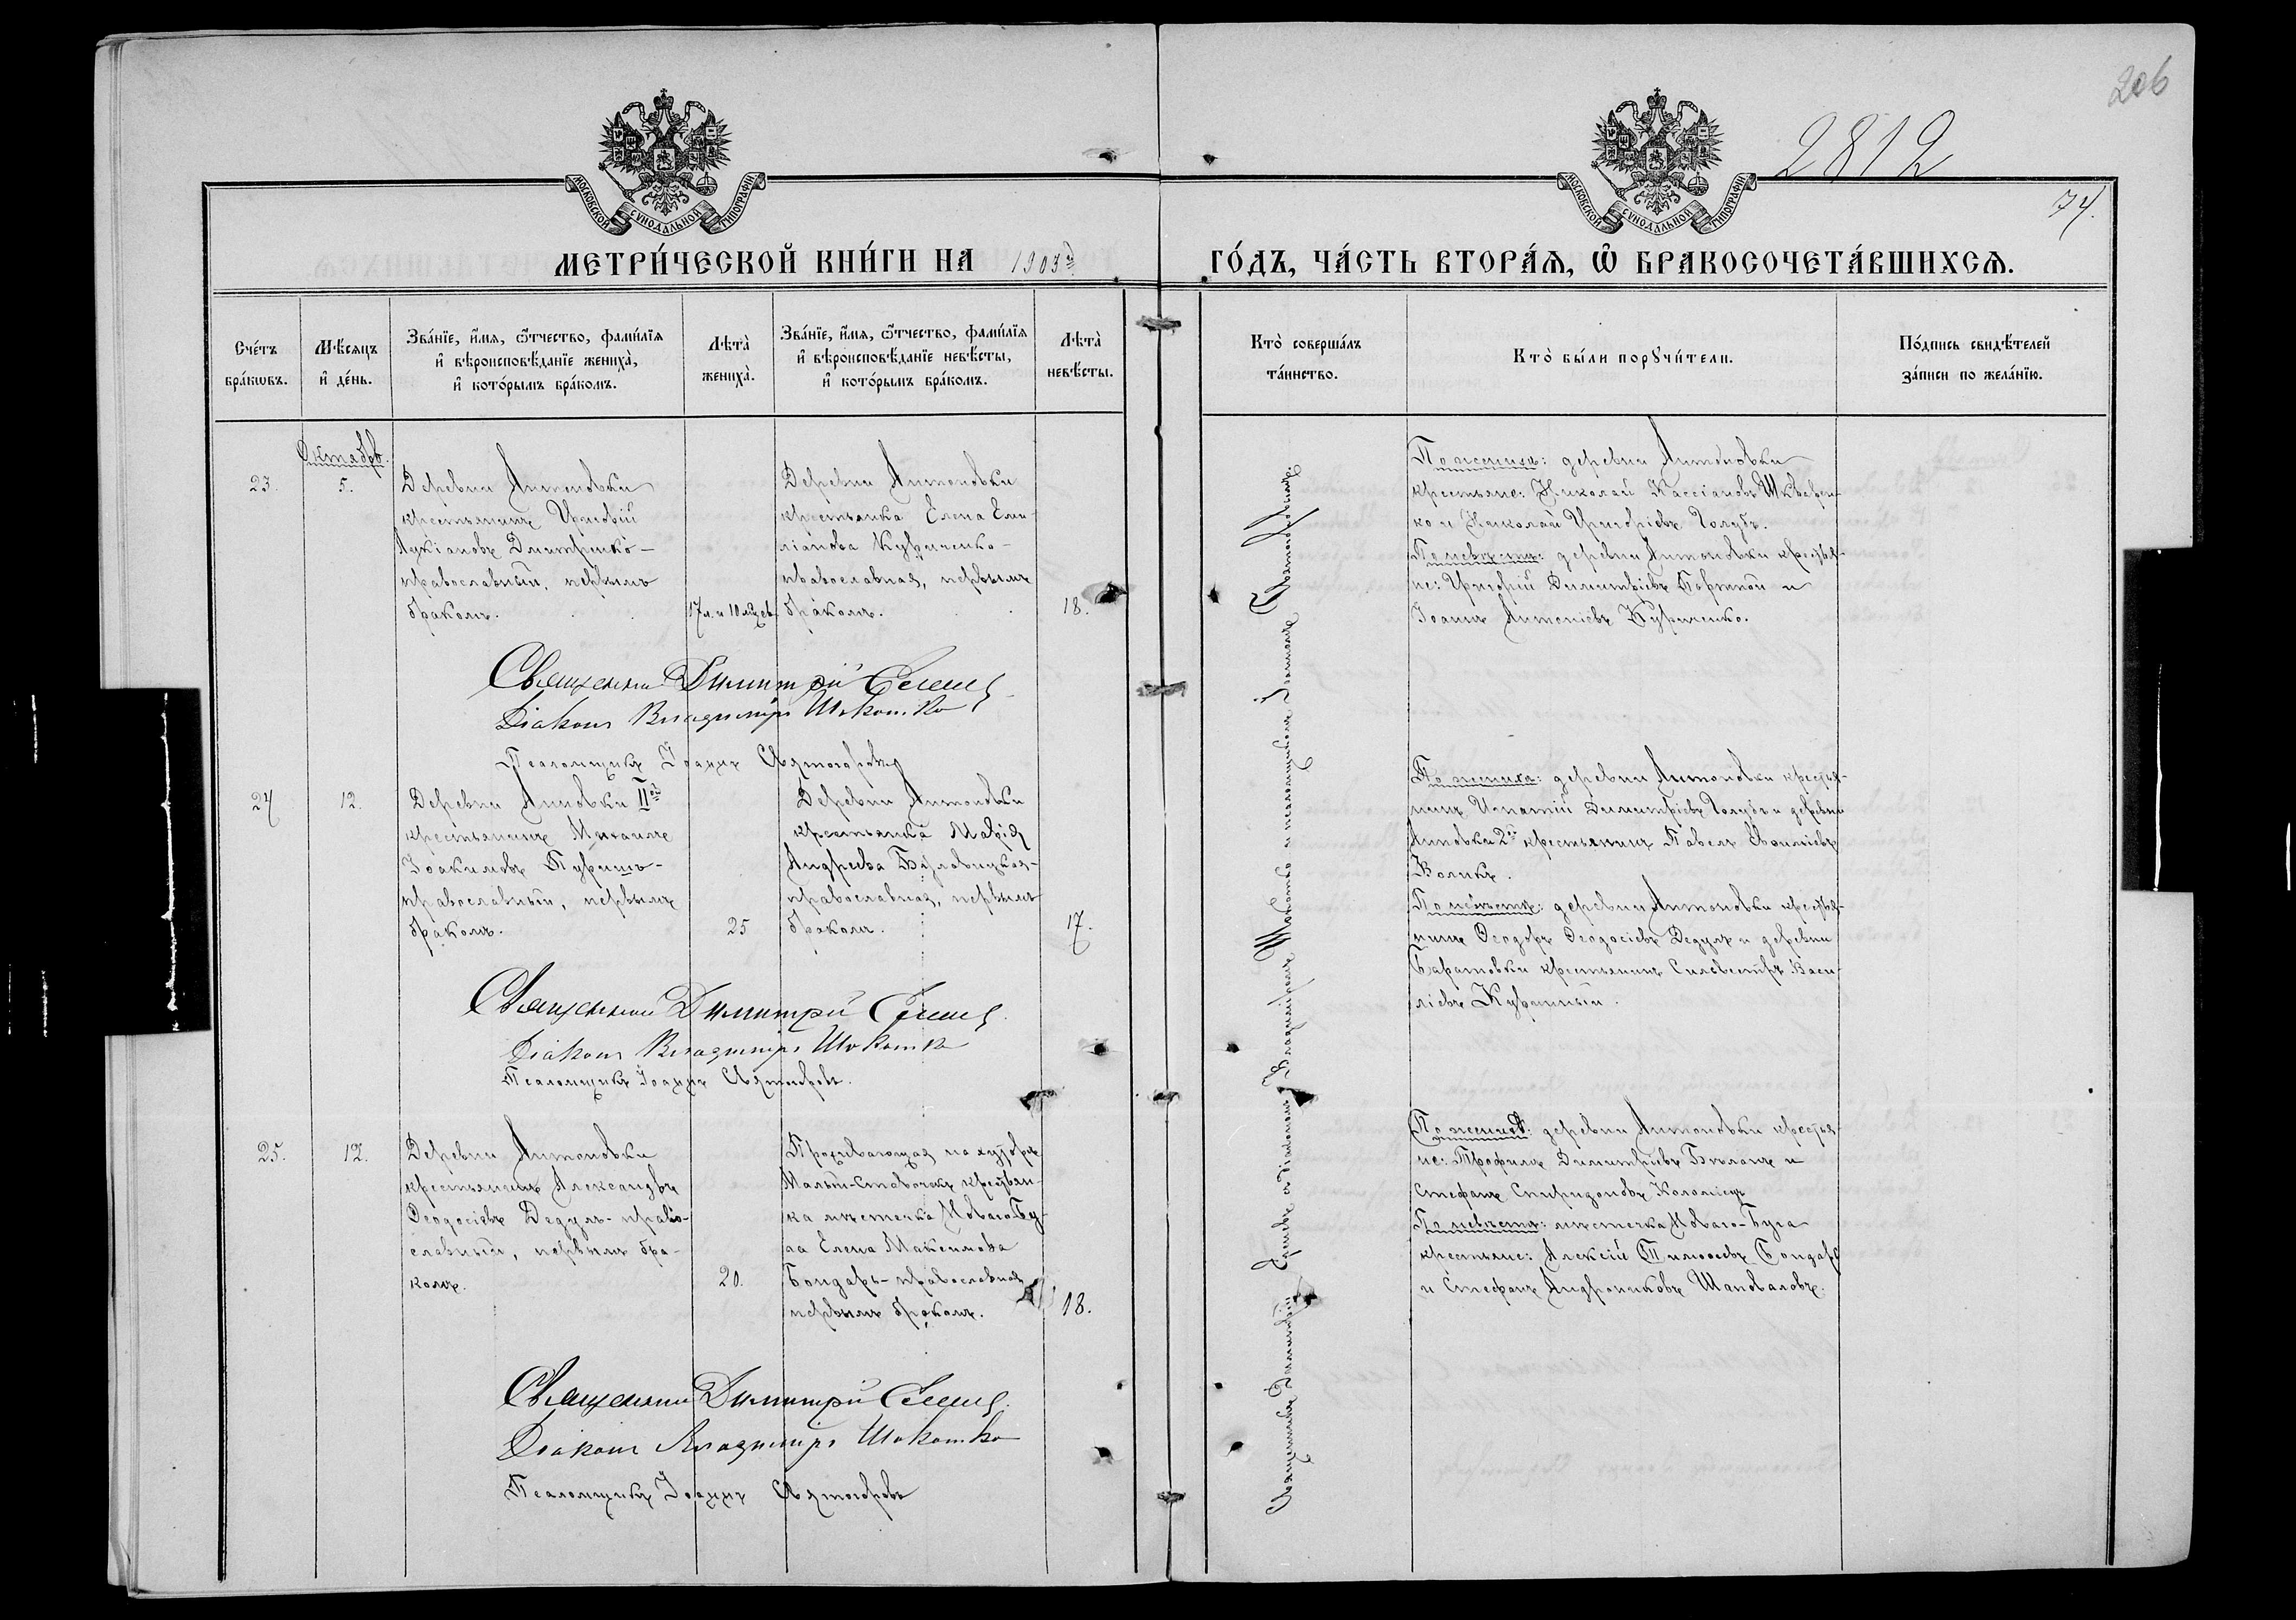 206
2812
74.
МОСКОВСКОЙ СѴНОДАЛЬНОЙ ТИПОГРАФІИ
МОСКОВСКОЙ СѴНОДАЛЬНОЙ ТИПОГРАФІИ
МЕТРИ́ЧЕСКОЙ КНИ́ГИ НА 1903й ГО́ДЪ, ЧА́СТЬ ВТОРА́Ѧ, Ѡ҆ БРАКОСОЧЕТА́ВШИХСѦ.
Сче́тъ бра́кѡвъ.
Мѣ́сяцъ и҆ де́нь.
Зва́нїе, и҆́мѧ, ѻ҆́тчество, фами́лїѧ
и҆ вѣроисповѣ́данїе жениха̀,
и҆ кото́рымъ бра́комъ.
Лѣта̀ жениха̀.
Зва́нїе, и҆́мѧ, ѻ҆́тчество, фами́лїѧ
и҆ вѣроисповѣ́данїе невѣ́сты,
и҆ кото́рымъ бра́комъ.
Лѣта̀ невѣ́сты.
Кто̀ соверша́лъ та́инство.
Кто̀ бы́ли порꙋчи́тели.
По́дпись свидѣ́телей за́писи по жела́нїю.
Октябрь.
23.
5.
Деревни Антоновки
крестьянинъ
Лукіановъ Дмитренко-
православный, первымъ
бракомъ.
17 л. и 10 мѣсяц.
Деревни Антоновки
крестьянка Елена Еми-
ліанова Куриченко-
православная, первымъ
бракомъ.
18.
По женихѣ: деревни Антоновки
крестьяне: Николай Кассіановъ
ко и Николай Григоріевъ Голубъ.
По невѣстѣ: деревни Антоновки крестья-
не: Григорій Димитріевъ Портной и
Іоаннъ Антоніевъ Куриченко.
Священникъ Димитрій
Діаконъ Владиміръ Шокотко
Псаломщикъ Іоаннъ Святогоровъ
24
12.
Деревни Анновки IIой
крестьянинъ Михаилъ
Іоакимовъ
православный, первымъ
бракомъ.
25
Деревни Антоновки
крестьянка Марія
Андреева
православная, первымъ
бракомъ.
17.
По женихѣ: деревни Антоновки крестья-
нинъ Игнатій Димитріевъ Голубъ и деревни
Анновки 2й крестьянинъ Павелъ
Воликъ.
По невѣстѣ: деревни Антоновки крестья-
нинъ Ѳеодоръ Ѳеодосіевъ Дедулъ и деревни
Баратовки крестьянинъ Сильвестръ Васи-
ліевъ
Священникъ Димитрій
Діаконъ Владиміръ Шокотко
Псаломщикъ Іоаннъ Святогоровъ.
25.
12.
Деревни Антоновки
крестьянинъ Александръ
Ѳеодосіевъ Дедулъ- право-
славный, первымъ бра-
комъ.
20.
Проживающая на хуторѣ
крестьян-
ка мѣстечка Новаго-Бу-
га Елена Максимова
Бондарь- православная
первымъ бракомъ.
18.
По женихѣ: деревни Антоновки крестья-
не: Трофимъ Димитріевъ и
Стефанъ Спиридоновъ Коломіецъ
По невѣстѣ: мѣстечка Новаго-Буга
крестьяне: Алексій Бондарь
и Стефанъ Андрониковъ Шаповаловъ.
Священникъ Димитрій
Діаконъ Владиміръ Шокотко
Псаломщикъ Іоаннъ Святогоровъ
Священникъ Димитрій съ діакономъ Владиміромъ Шокотко и псаломщикомъ Іоанномъ Святогоровымъ